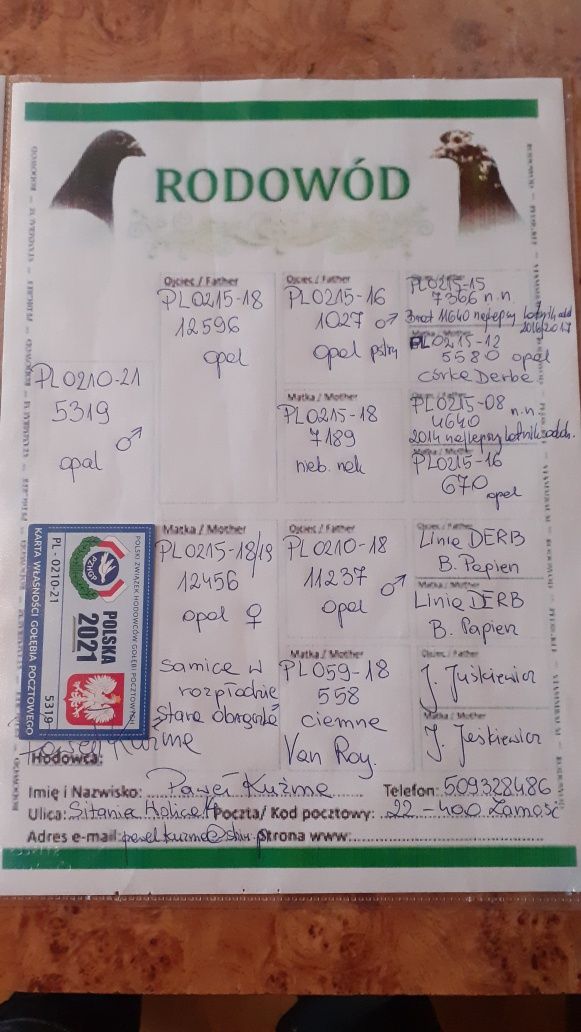 RODOWÓD
PL0210-21
5319 ♂
opal
Ojciec / Father
PL0215-18
12596
opal
Ojciec / Father
PL0215-16
1027 ♂
opal pstry
PL0215-15
7366 n.n.
brat 11640 najlepszy lotnik odd
2016/2017
PL0215-12
5580 opal
córka Derbe
Matka / Mother
PL0215-18
7189
nieb. nak
PL0215-08 n.n.
4640
2014 najlepszy lotnik oddz.
PL0215-16
670 opal
Matka / Mother
PL0215-18/19
12456
opal ♀
samica w
rozpłodzie
stara obrączka
Ojciec / Father
PL0210-18
11237 ♂
opal
Ojciec / Father
Linia DERB
B. Papier
Matka / Mother
Linia DERB
B. Papier
Matka / Mother
PL059-18
558
ciemna
Van Roy.
Ojciec / Father
J. Juskiewicz
Matka / Mother
J. Jeskiewicz
KARTA WŁASNOŚCI GOŁĘBIA POCZTOWEGO
PL - 0210-21
5319
POLSKI ZWIĄZEK HODOWCÓW GOŁĘBI POCZTOWYCH
PZHGP
POLSKA
2021
Hodowca:
Imię i Nazwisko: Paweł Kuźma Telefon: 509328486
Ulica: Sitaniec Poczta/ Kod pocztowy: 22-400 Zamość
Adres e-mail: Strona www: